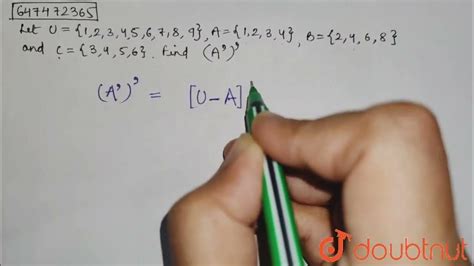 647472365
Let U = {1,2,3,4,5,6,7,8,9}, A = {1,2,3,4}, B = {2,4,6,8}
and C = {3,4,5,6}. Find (A')'
(A')' = [U-A]
doubtnut